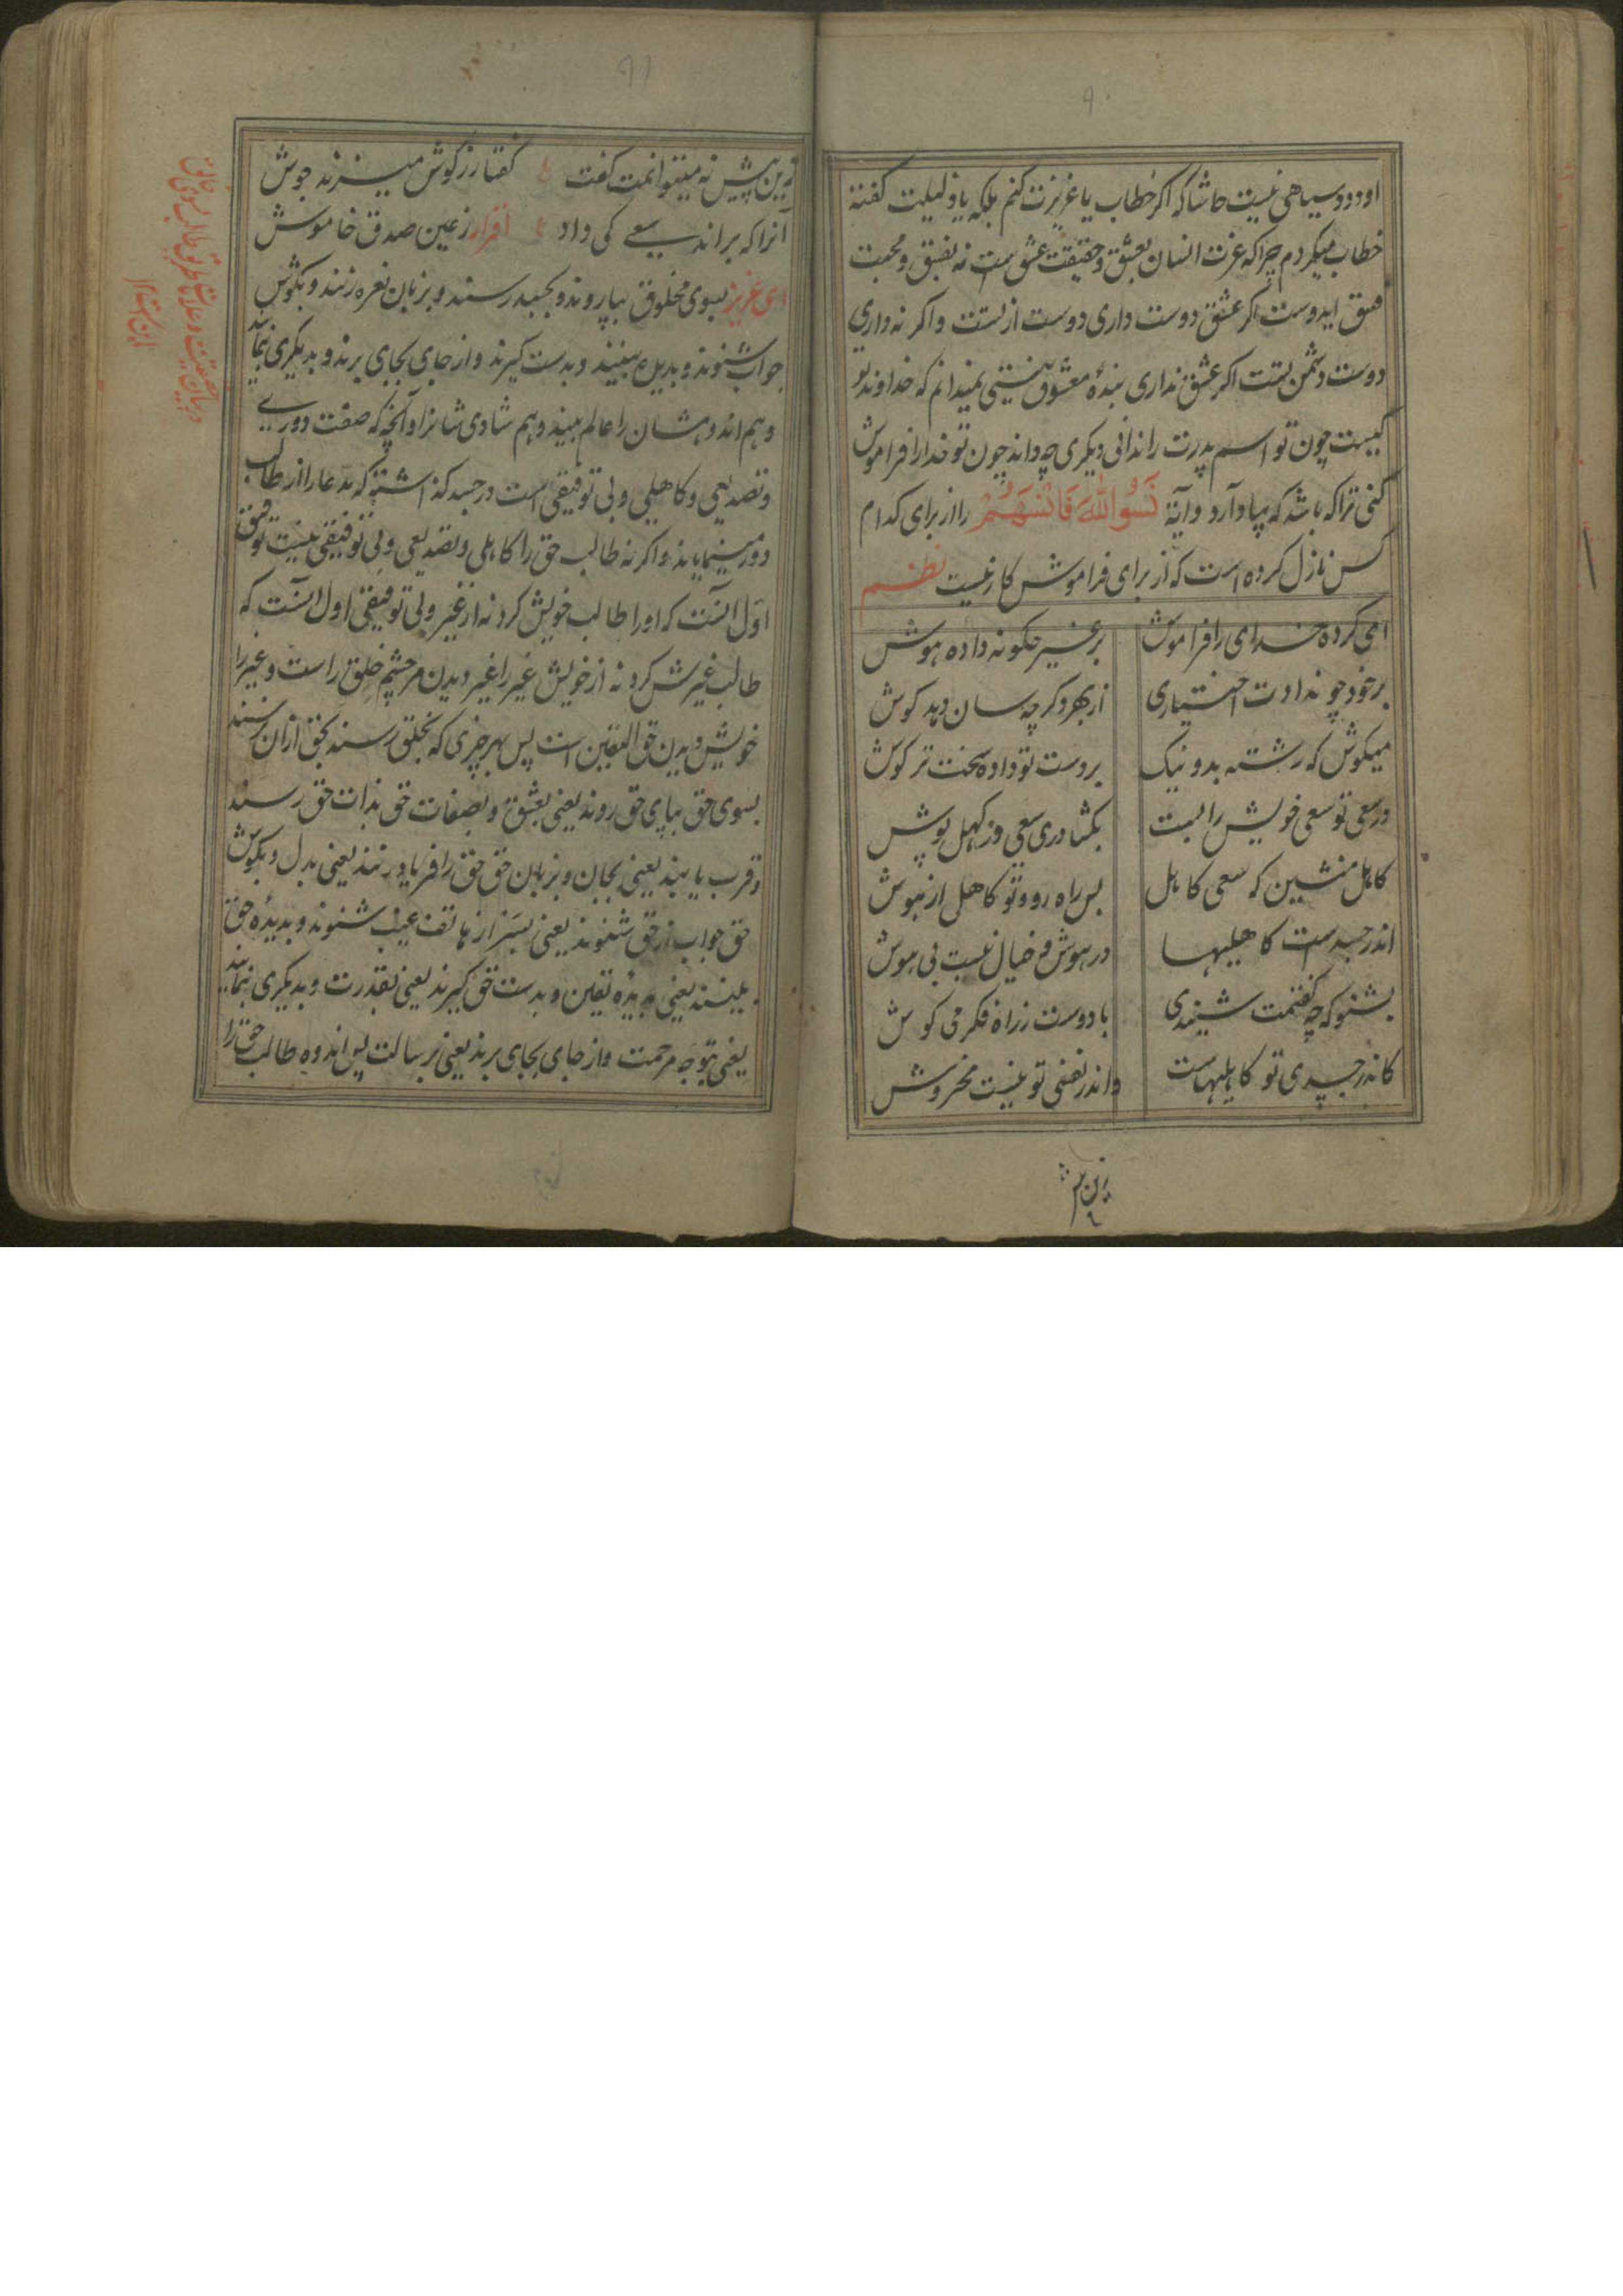 ۹۰
او دود سیاهی نیست حاشا که اگر خطاب یا عزیزت کنم بلکه یا ذلیلت گفته
خطاب میکردم چرا که عزت انسان بعشق و حقیقت عشق است نه بفسق و محبت
فسق ایدوست اگر عشق دوست داری دوست از تست و اگر نه داری
دوست دشمن تست اگر عشق نداری بندهٔ معشوق نیستی نمیدانم که خداوند تو
کیست چون تو اسم پدرت را ندانی دیگری چه داند چون تو خدا را فراموش
کنی ترا که باشد که بیاد آرد و آیهٔ نَسُوا اللهَ فَاَنْسٰهُمْ را از برای کدام
کس نازل کرده است که از برای فراموش کار نیست نظم
ای کرده خدای را فراموش برغیر چگونه داده هوش
برخود چو ندادت اختیاری از بهر دگر چه سان دهد گوش
میکوش که رشته بد و نیک بر دست تو داده سخت تر کوش
در سعی تو سعی خویش را بست بگشا در سعی وز کهل پوش
کاهل منشین که سعی کاهل بس راه رود تو کاهل از نبوش
اندر جسدست کاهلیها در هوش و خیال نیست بی هوش
بشنو که چه گفتمت شنیدی با دوست ز راه فکر می کوش
کاندر جسدی تو کاهلیهاست و اندر نفسی تو نیست مخروش
زین پیش
۹۱
زین پیش نه میتوانمت گفت گفتار ز گوش میزند جوش
آنرا که براند سعی کی داد اقرار ز عین صدق خاموش
ای عزیز بسوی مخلوق بپا روند و بجسد رسند و بزبان نعره زنند و بگوش
جواب شنوند و بدیده بینند و بدست گیرند و از جای بجای برند و بدیگری نمایند
و هم اندوهشان را عالم بیند و هم شادی شانرا و آنچه که صفت دوری
و تصدیعی و کاهلی و بی توفیقی است در جسد گذاشته که مدعا را از طالب
دور مینمایند و اگر نه طالب حق را کاهلی و تصدیعی و بی توفیقی نیست توفیق
اول آنست که او را طالب خویش کرد نه از غیر و بی توفیقی اول آنست که
طالب غیرش کرد نه از خویش غیر را غیر دیدن مر چشم خلق راست و غیر را
خویش دیدن حق الیقین است پس بهر چیزی که بخلق رسند بحق از آن نرسند
بسوی حق بپای حق روند یعنی بعشق و بصفات حق بذات حق رسند
و قرب یابند یعنی بجان و بزبان حق حق را فریاد زنند یعنی بدل و بگوش
حق جواب از حق شنوند یعنی بسَر از هاتف غیب شنوند و بدیدهٔ حق
بینند یعنی بدیدهٔ یقین و بدست حق گیرند یعنی بقدرت و بدیگری نمایند
یعنی بتوجه مرحمت و از جای بجای برند یعنی برسالت پس اندوه طالب حق را